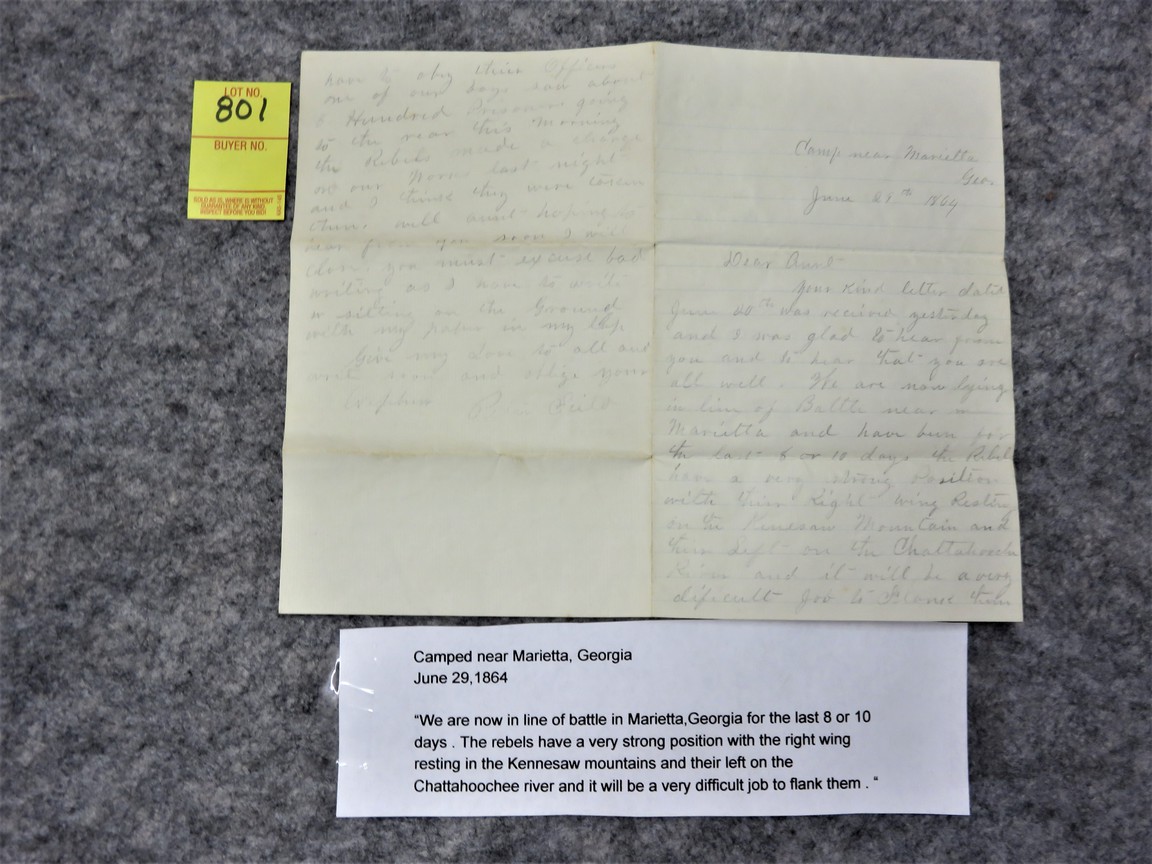 LOT NO.
801
BUYER NO.
SOLD AS IS, WHERE IS WITHOUT
GUARANTEE OF ANY KIND.
INSPECT BEFORE YOU BID!
have to obey their Officers
one of our boys said about
Hundred Prisoners going
to the rear this morning
the Rebels made a charge
on our Works last night
and I think they were
will hoping to
hear from you soon I will
close you must excuse bad
writing as I have to write
sitting on the Ground
with my paper in my lap
Give my Love to all and
write soon and oblige your
Nephew
Camp near Marietta
Geo
June 29th 1864
Dear Aunt
Your kind letter date
June 20th was recieved yesterday
and I was glad to hear from
you and to hear that you are
all well. We are now lying
in line of Battle near
Marietta and have been for
the last 8 or 10 days the Rebels
have a very strong Position
with their Right wing Resting
on the Kenesaw Mountain and
their Left on the Chattahooch
River and it will be a very
dificult Job to them
Camped near Marietta, Georgia
June 29,1864
“We are now in line of battle in Marietta,Georgia for the last 8 or 10
days . The rebels have a very strong position with the right wing
resting in the Kennesaw mountains and their left on the
Chattahoochee river and it will be a very difficult job to flank them . “